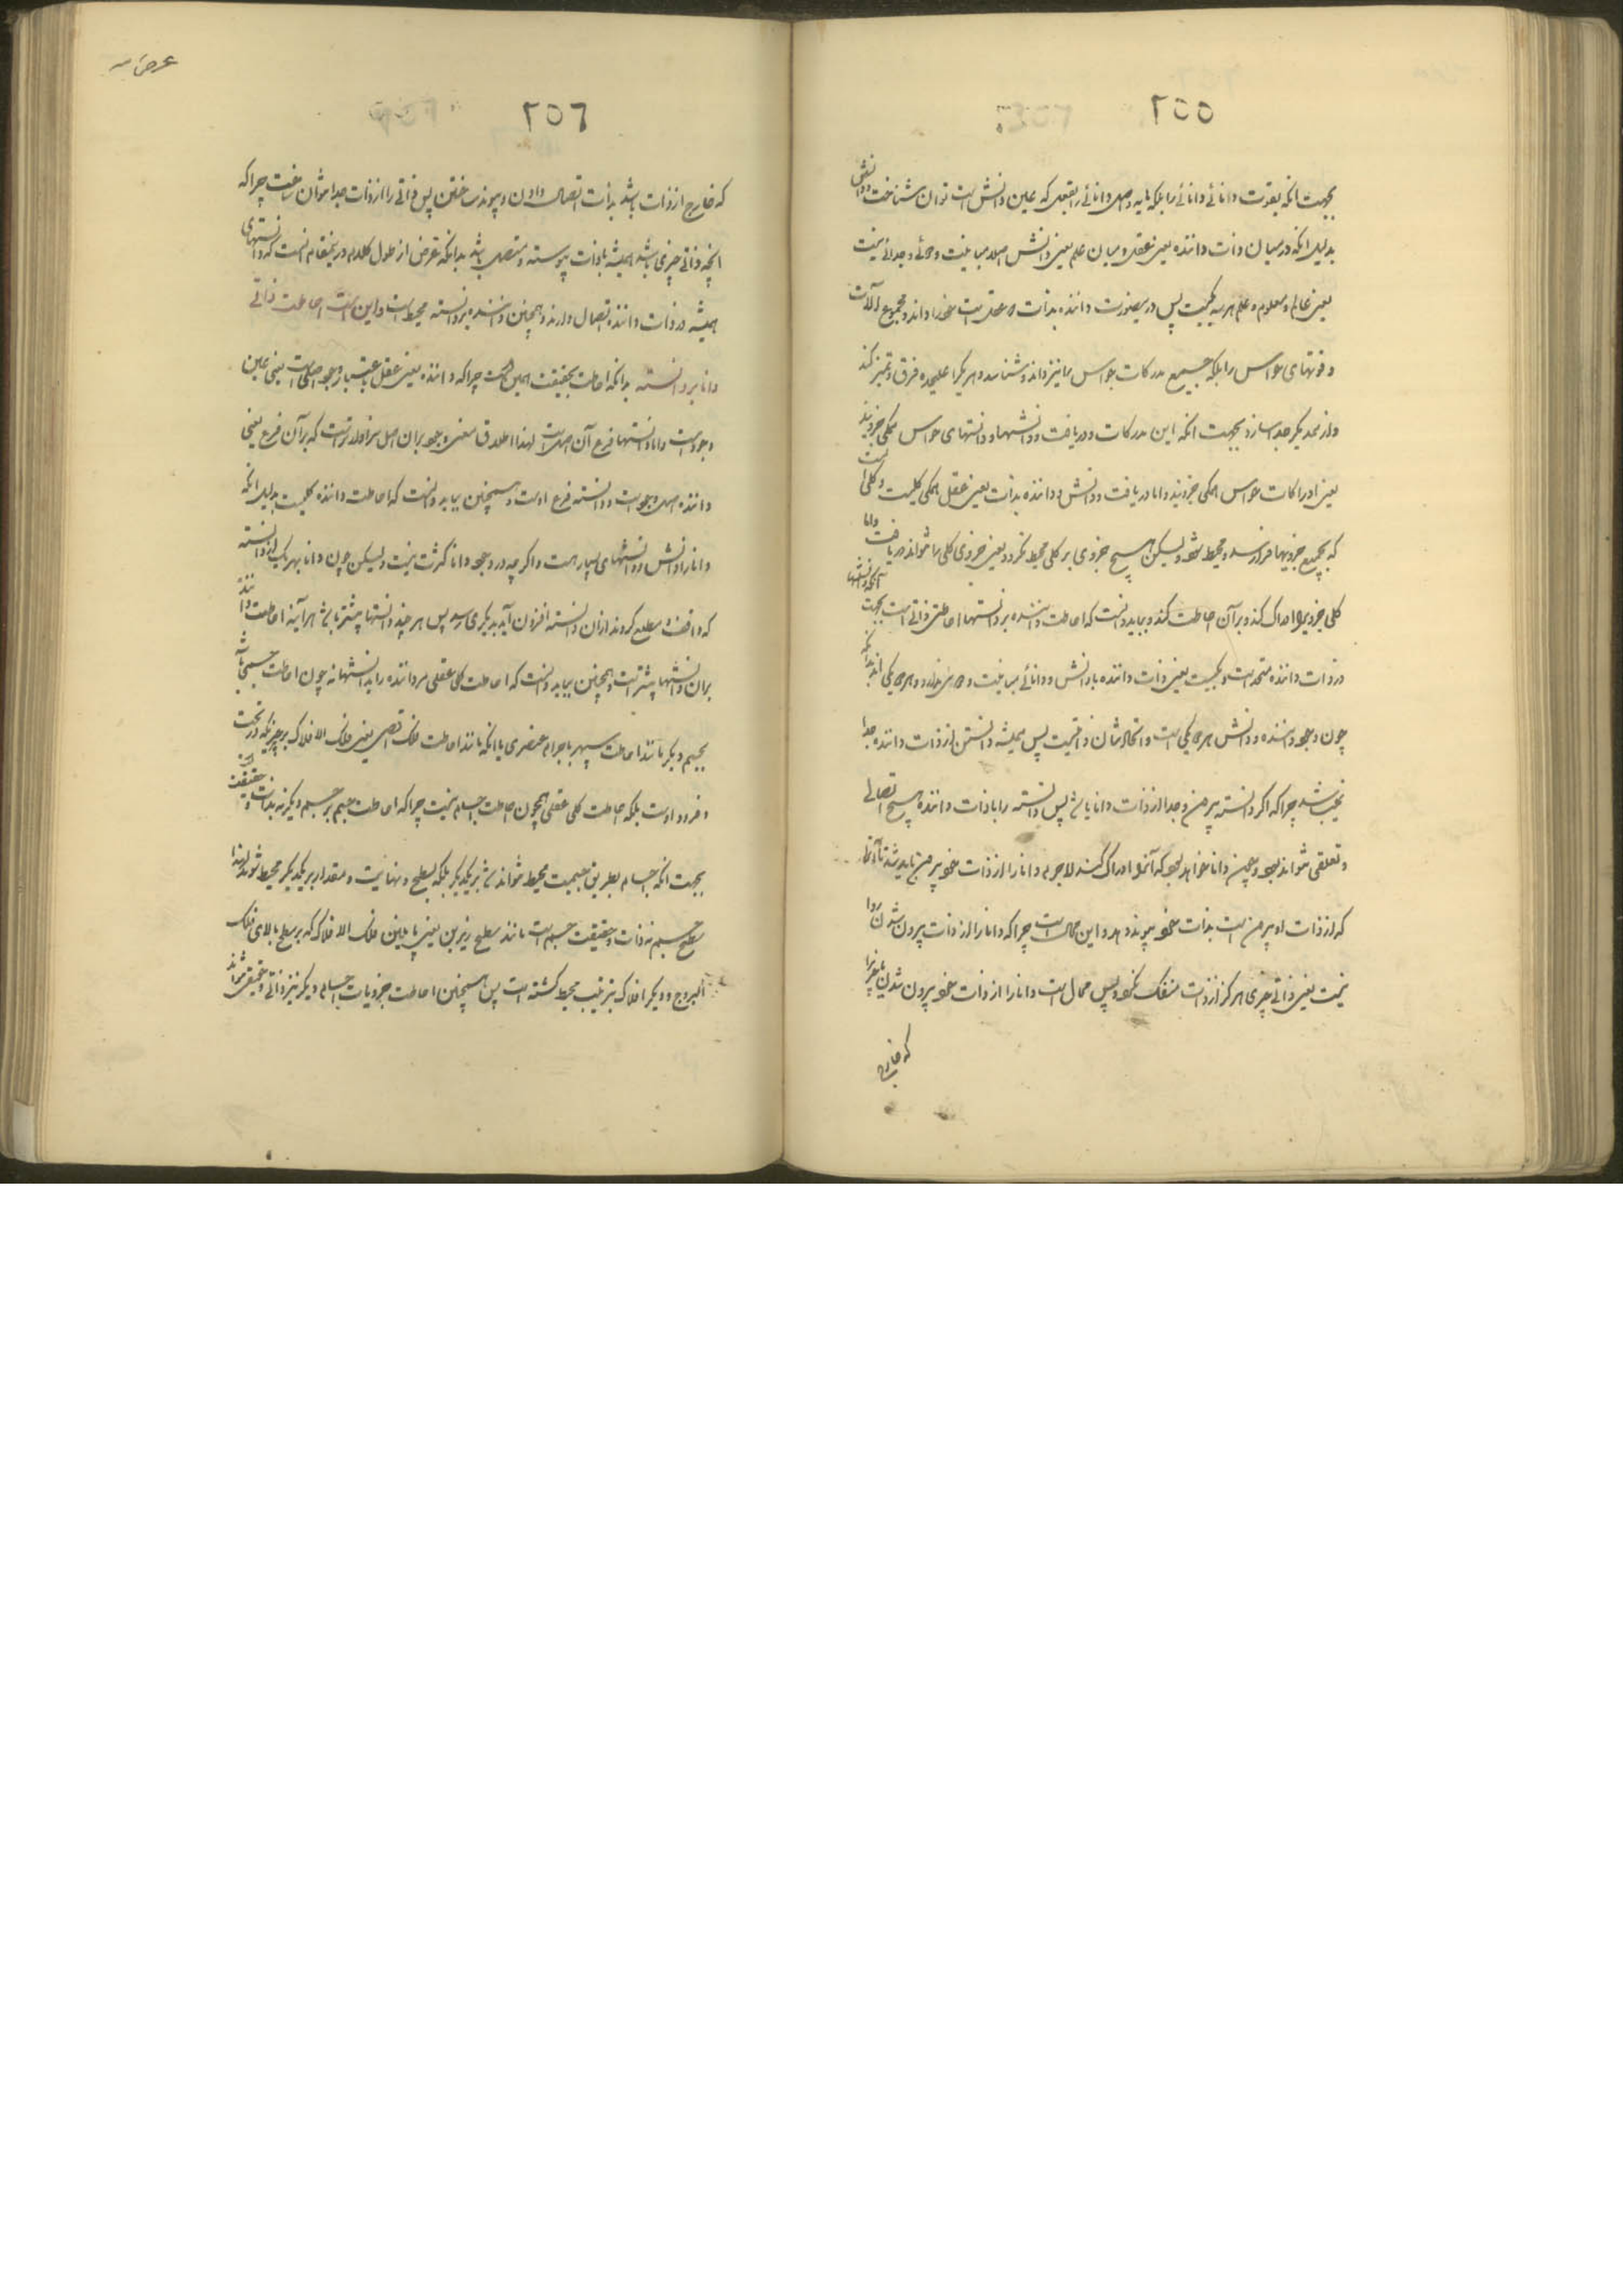 ٢٥٥
بجهت انکه بقوت دانائی دانائی را بلکه پایه و اصل دانائی را بعقل که عین دانش است توان شناخت
بدلیل انکه در میان ذات داننده یعنی عقل و میان علم یعنی دانش اصلا مباینت و جدائی نیست
یعنی عالم و معلوم و علم هر سه یکیست پس درینصورت داننده بذات که عقل است خود را داند و مجموع آلات
و قوتهای حواس را بلکه جمیع مدرکات حواس را نیز داند و شناسد و هر یکرا علیحده فرق و تمیز کند
و از همدیکر جدا سازد بجهت انکه این مدرکات و دریافت و دانشها و دانستهای حواس همکی جزویند
یعنی ادراکات حواس همکی جزویند و اما دریافت و دانش داننده بذات یعنی عقل همکی کلیست و کلی است
که بجمیع جزویها فرا رسد و محیط شود ولیکن هیچ جزوی بر کلی محیط نکردد یعنی جزوی کلی را نتواند دریافت و اما
کلی جزوی را ادراک کند و بر آن احاطت کند و بباید دانست که احاطت داننده بر دانستها احاطتی ذاتی است بجهت آنکه دانستها
در ذات داننده متحد است و یکیست یعنی ذات داننده با دانش و دانائی مباینت و جدائی ندارد و هر سه یکی اند
چون وجود داننده و دانش هر سه یکی است و اتحاد شان واقعیست پس همیشه دانستن از ذات داننده جدا
نمیباشد چرا که اکر دانسته بیرون و جدا از ذات دانا باشد پس دانسته را با ذات داننده هیچ اتصالی
و تعلقی نتواند بود و چون دانا خواهد بود که آنرا ادراک کند لاجرم دانا را از ذات خود بیرون باید شد تا آنرا
که از ذات او بیرون است بذات خود پیوند دهد و این محال است چرا که دانا را از ذات بیرون شدن روا
نیست یعنی ذاتی چیزی هرکز از ذات منفک نشود پس محال است دانا را از ذات خود بیرون شدن
که خارج
عرض
٢٥٦
که خارج از ذات باشد بذات اتصال دادن و پیوند ساختن پس ذاتی را از ذات جدا نتوان ساخت چرا که
انچه ذاتی چیزی باشد همیشه با ذات پیوسته و متصل باشد بدانکه غرض از طول کلام درینمقام انست که دانستهای
همیشه در ذات داننده اتصال دارند و همچنین داننده بر دانسته محیط است و این است احاطت ذاتی
دانا بر دانسته بدانکه احاطت بحقیقت همین است چرا که داننده یعنی عقل باعتبار وجود اصل است یعنی عین
وجود است و اما دانستها فرع آن اصل است لهذا اطلاق معنی وجود بر آن اصل سزاوارتر است که بر آن فرع یعنی
داننده اصل وجود است و دانسته فرع اوست و همچنین بباید دانست که احاطت داننده کلیست بدلیل انکه
دانا را دانش و دانستهای بسیار است و اکرچه در وجود دانا کثرت نیست ولیکن چون دانا بهر یک از دانسته
که واقف و مطلع کردد از ان دانسته افزون آید بدیکری رسد پس هر چند دانستها بیشتر باشد هر آینه احاطت داننده
بر آن دانستها بیشتر است و همچنین بباید دانست که احاطت کلی عقلی مر داننده را بدانستها نه چون احاطت جسمی باشد
بجسم دیکر مانند احاطت سپهر باجرام عنصری یا انکه مانند احاطت فلک اقصی یعنی فلک الافلاک بر چیزیکه در تحت
و فرود اوست بلکه احاطت کلی عقلی همچون احاطت اجسام نیست چرا که احاطت جسم بر جسم دیکر نه بذات و حقیقت
بجهت انکه اجسام بطریق جسمیت محیط نتواند شد بر یکدیکر بلکه بسطح و نهایت و مقدار بر یکدیکر محیط شوند لهذا
سطح جسم نه ذات و حقیقت جسم است مانند سطح زیرین یعنی پایین فلک الافلاک که بر سطح بالای فلک
البروج و دیکر افلاک بترتیب محیط کشته است پس همچنین احاطت جزویات اجسام دیکر نیز ذاتی و حقیقی نتواند